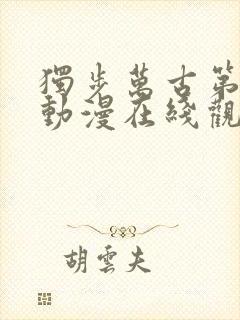 獨步萬古第
動漫在綫觀
胡雲夫